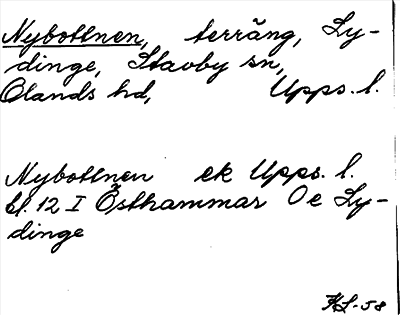 Nybottnen, terräng, Ly-
dinge, Stavby sn,
Olands hd, Upps. l.
Nybottnen ek Upps. l.
bl. 12 I Östhammar Oe Ly-
dinge
HL-58